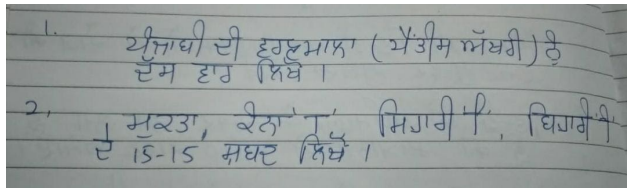 1.
ਪੰਜਾਬੀ ਦੀ ਵਰਣਮਾਲਾ (ਪੈਂਤੀਸ ਅੱਖਰੀ) ਨੂੰ
ਦੱਸ ਵਾਰ ਲਿਖੋ ।
2. ਮੁਕਤਾ, ਕੰਨਾ ਾ, ਸਿਹਾਰੀ ਿ, ਬਿਹਾਰੀ ੀ
ਦੇ 15-15 ਸ਼ਬਦ ਲਿਖੋ ।